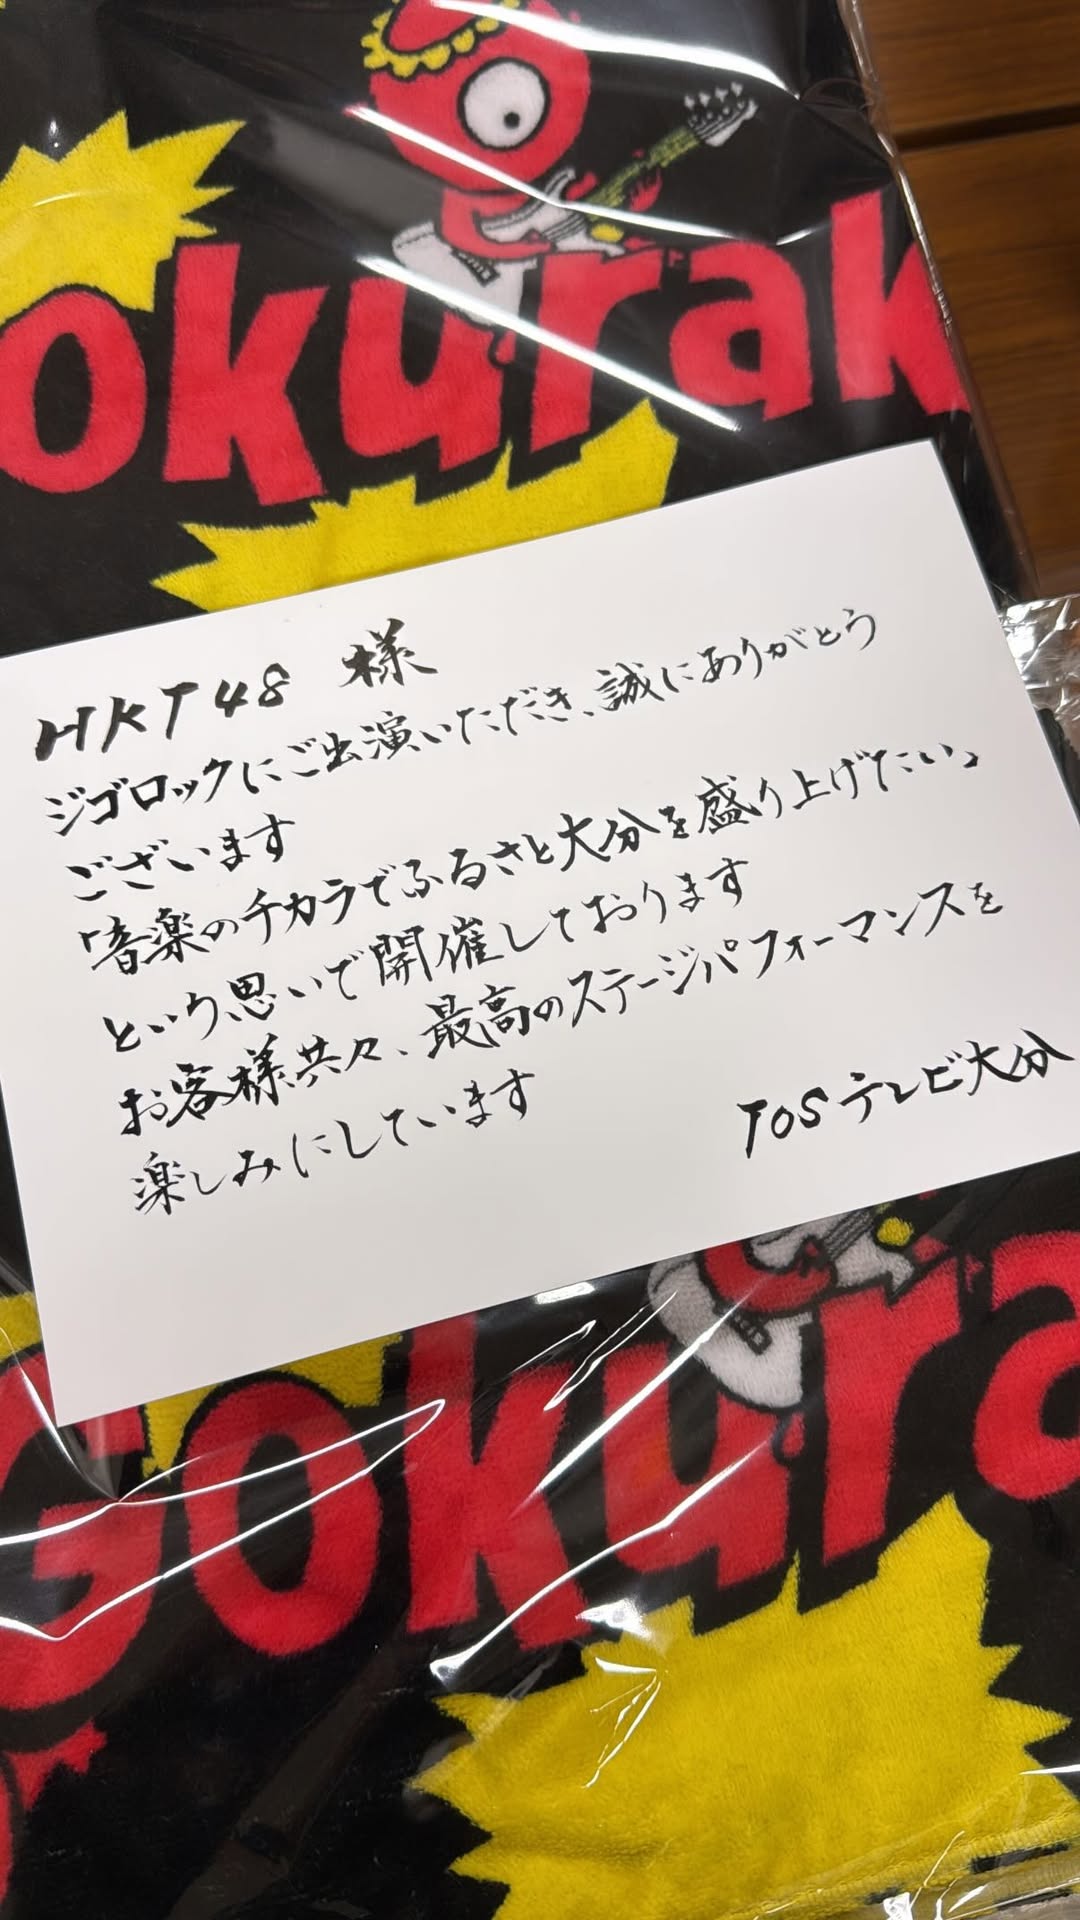 okurak
HKT48 様
ジゴロックにご出演いただき、誠にありがとう
ございます
「音楽のチカラでふるさと大分を盛り上げたい」
という思いで開催しております
お客様共々、最高のステージパフォーマンスを
楽しみにしています
TOSテレビ大分
Gokura